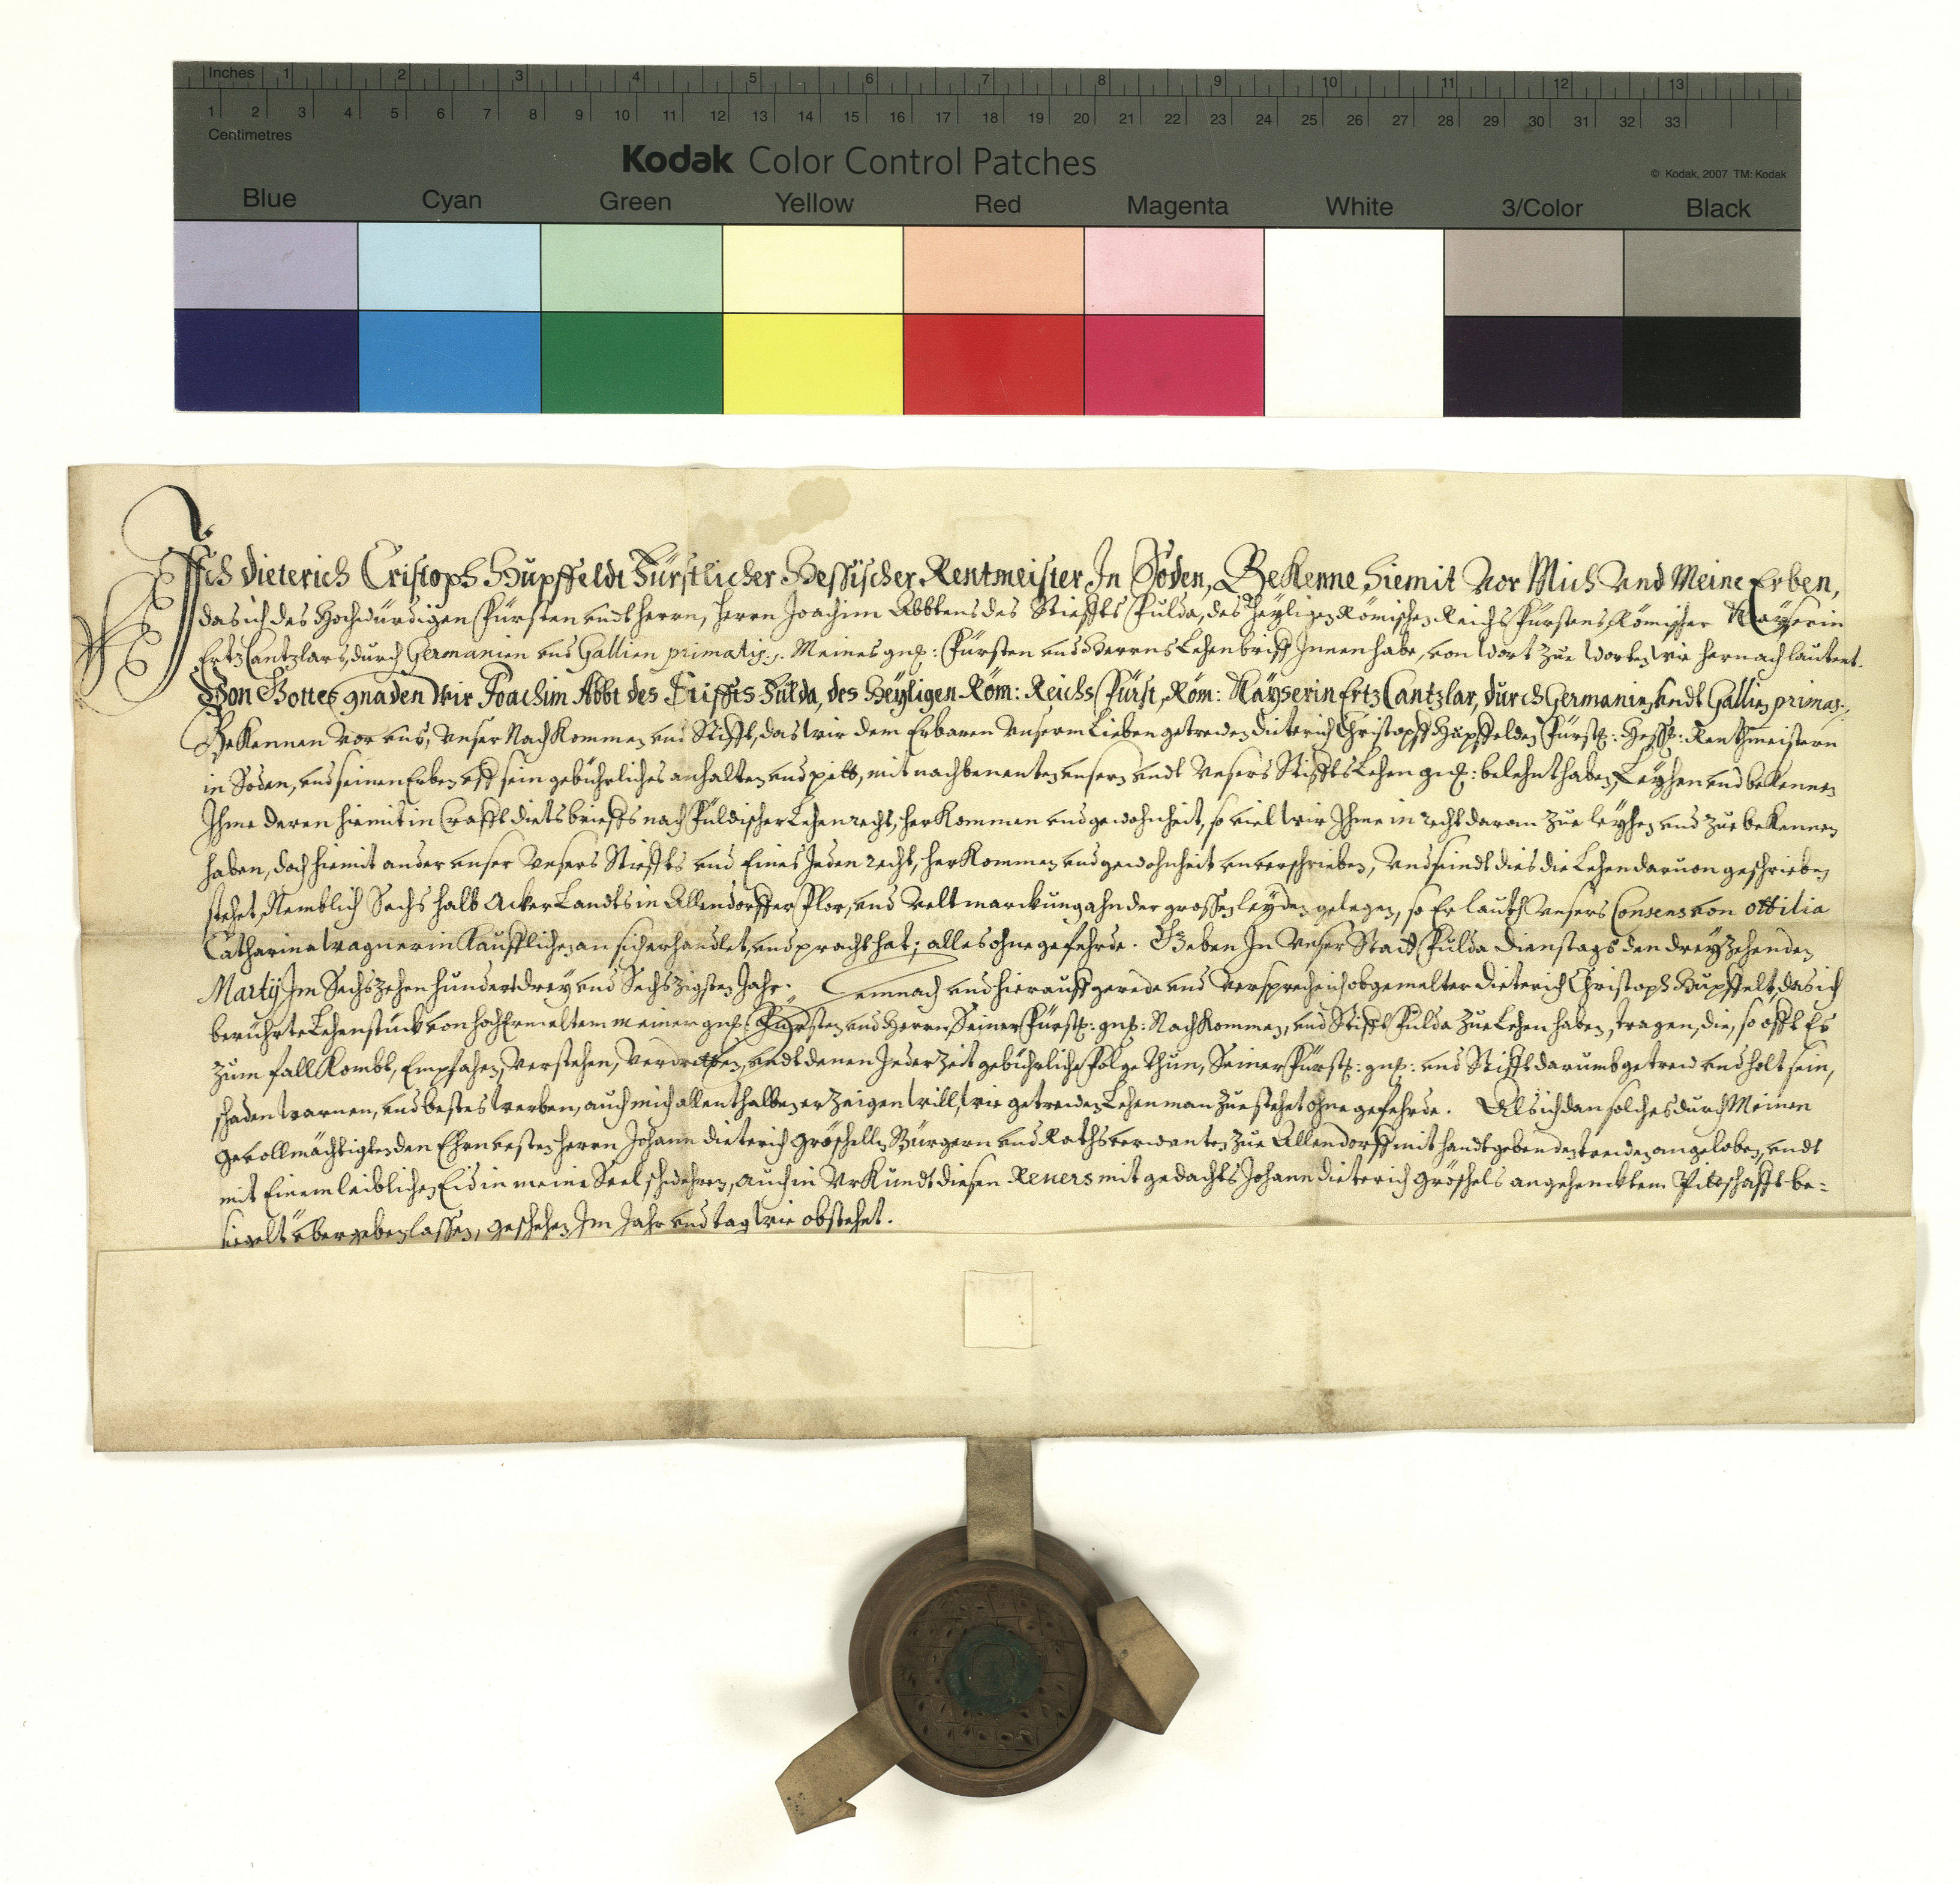 Inches 1 2 3 4 5 6 7 8 9 10 11 12 13
1 2 3 4 5 6 7 8 9 10 11 12 13 14 15 16 17 18 19 20 21 22 23 24 25 26 27 28 29 30 31 32 33
Centimetres
Kodak Color Control Patches
© Kodak, 2007 TM: Kodak
Blue Cyan Green Yellow Red Magenta White 3/Color Black
Ich Dieterich Cristoph Hupffeldt Fürstlicher Hessischer Rentmeister In Soden, Bekenne hiemit vor Mich und Meine Erben,
das ich des Hochwürdigen Fürsten undt Herrn, Herrn Joachim Abbtens des Stieffts Fulda, des Heyligen Römischen Reichs Fürstens, Römischer Kayserin
ErtzCantzlars, durch Germanien und Gallien primatis. Meines gnd: Fürsten und Herrns Lehenbrieff Innen habe, von Wort zue Worten wie hernach lautent.
Von Gottes gnaden Wir Joachim Abbt des Stiffts Fulda, des Heyligen Röm: Reichs Fürst, Röm: Kayserin ErtzCantzlar, durch Germanien undt Gallien primas,
Bekennen vor uns, unser Nachkommen und Stifft, das wir dem Erbaren Unserm Lieben getrewen Dieterich Christopff Hupffelden Fürstl: Hessl: Renthmeistern
in Soden, und seinen Erben uff sein gebührliches anhalten und pitt, mit nachbenenten unsern undt Unsers Stiffts Lehen gnd: belehnt haben, Leyhen und bekennen
Ihme deren hiemit in Crafft diets brieffs nach Fuldischer Lehen recht, herkommen und gewohnheit, so viel wir Ihme in recht daran zue leyhen und zue bekennen
haben, doch hiemit ander unser Unsers Stieffts und Eines Jeden recht, herkommen und gewohnheit unverschrieben, Und seindt dies die Lehen daruon geschrieben
stehet, Nemblich Sechs halb Acker Landts in Allendorffer Flor, und Veltmarckung ahn der grossen leyden gelegen, so Er lauth Unsers Consens von Ottilia
Catharina Wagnerin Kaufflichen an sich erhandlet, und pracht hat; alles ohne gefehrde. Geben In Unser Statt Fulda Dienstags den dreyzehenden
Martij Im Sechszehen hundert drey und Sechszigsten Jahr. Demnach und hierauff gerede und Versprech ich obgemelter Dieterich Christoph Hupffelt, das ich
berührte Lehenstück von hochErmeltem meinem gnd: Fürsten und Herrn, Seiner Fürstl: gnd: Nachkommen, und Stifft Fulda zue Lehen haben, tragen, die, so offt Es
zum fall Kombt, Empfahen, Verstehen, Verdretten, undt denen Jeder Zeit gebührliche folge thun, Seiner Fürstl: gnd: und Stifft darumb getrew und holt sein,
schaden warnen, und bestes werben, auch mich allenthalben erzeigen will, wie getrewen Lehenman zue stehet ohne gefehrde. Als ich dan solches durch Meinen
gevollmächtigten den Ehrnvesten Herrn Johann Dieterich Gröschelln Bürgern und Rathsverwanten zue Allendorff mit handtgebenden trewen angeloben, undt
mit Einem leiblichen Eid in meine Seel schwehren, auch in Urkundt diesen Revers mit gedachts Johann Dieterich Gröschels angehencktem Pittschafft be-
siegelt übergeben lassen, geschehen Im Jahr und tag wie obstehet.